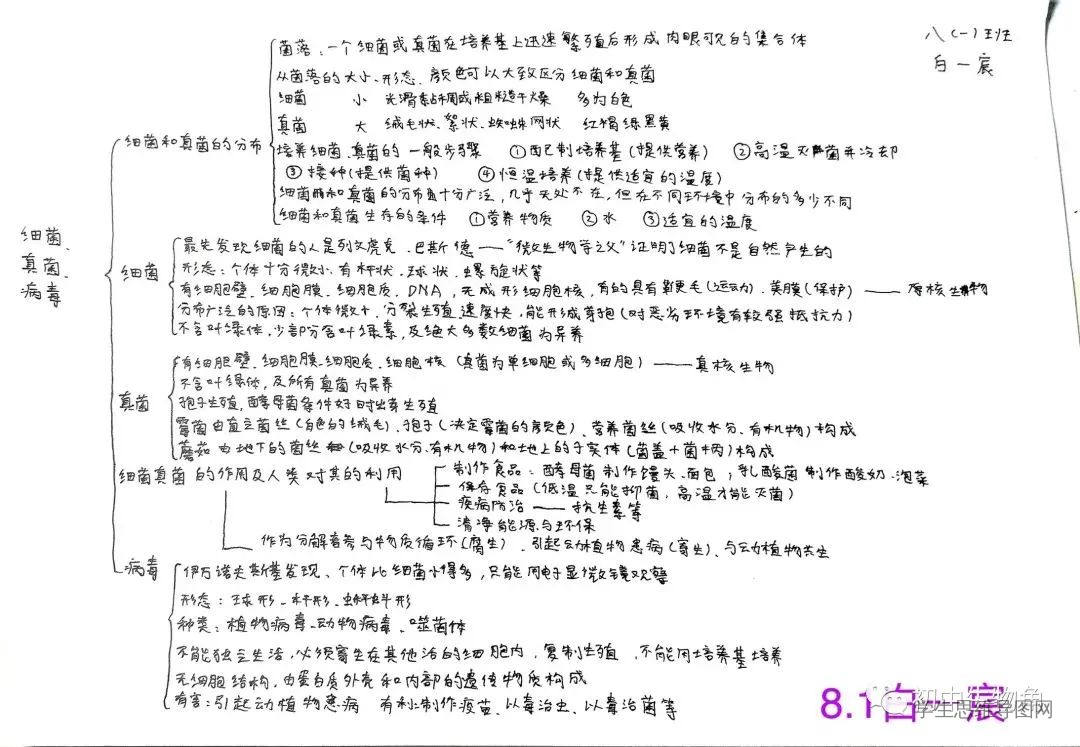 八(一)班
白一宸
细菌、真菌、病毒
细菌和真菌的分布
菌落：一个细菌或真菌在培养基上迅速繁殖后形成肉眼可见的集合体
从菌落的大小、形态、颜色可以大致区分细菌和真菌
细菌 小 光滑黏稠或粗糙干燥 多为白色
真菌 大 绒毛状、絮状、蜘蛛网状 红褐绿黑黄
培养细菌、真菌的一般步骤 ①配制培养基(提供营养) ②高温灭菌并冷却
③接种(提供菌种) ④恒温培养(提供适宜的温度)
细菌和真菌的分布十分广泛，几乎无处不在，但在不同环境中分布的多少不同
细菌和真菌生存的条件 ①营养物质 ②水 ③适宜的温度
细菌
最先发现细菌的人是列文虎克、巴斯德——“微生物学之父”证明了细菌不是自然产生的
形态：个体十分微小、有杆状、球状、螺旋状等
有细胞壁、细胞膜、细胞质、DNA，无成形细胞核，有的具有鞭毛(运动)、荚膜(保护)——原核生物
分布广泛的原因：个体微小，分裂生殖速度快，能形成芽孢(对恶劣环境有较强抵抗力)
不含叶绿体，少部分含叶绿素，及绝大多数细菌为异养
真菌
有细胞壁、细胞膜、细胞质、细胞核(真菌为单细胞或多细胞)——真核生物
不含叶绿体，及所有真菌为异养
孢子生殖，酵母菌条件好时出芽生殖
霉菌由直立菌丝(白色的绒毛)、孢子(决定霉菌的颜色)、营养菌丝(吸收水分、有机物)构成
蘑菇由地下的菌丝(吸收水分、有机物)和地上的子实体(菌盖+菌柄)构成
细菌真菌的作用及人类对其的利用
制作食品：酵母菌制作馒头、面包；乳酸菌制作酸奶、泡菜
保存食品(低温只能抑菌，高温才能灭菌)
疾病防治——抗生素等
清净能源与环保
作为分解者参与物质循环(腐生)、引起动植物患病(寄生)、与动植物共生
病毒
伊万诺夫斯基发现、个体比细菌小得多，只能用电子显微镜观察
形态：球形、杆形、蝌蚪形
种类：植物病毒、动物病毒、噬菌体
不能独立生活，必须寄生在其他活的细胞内，复制生殖，不能用培养基培养
无细胞结构，由蛋白质外壳和内部的遗传物质构成
有害：引起动植物患病 有利：制作疫苗、以毒治虫、以毒治菌等
8.1白一宸
初中生物角
学生思维导图网